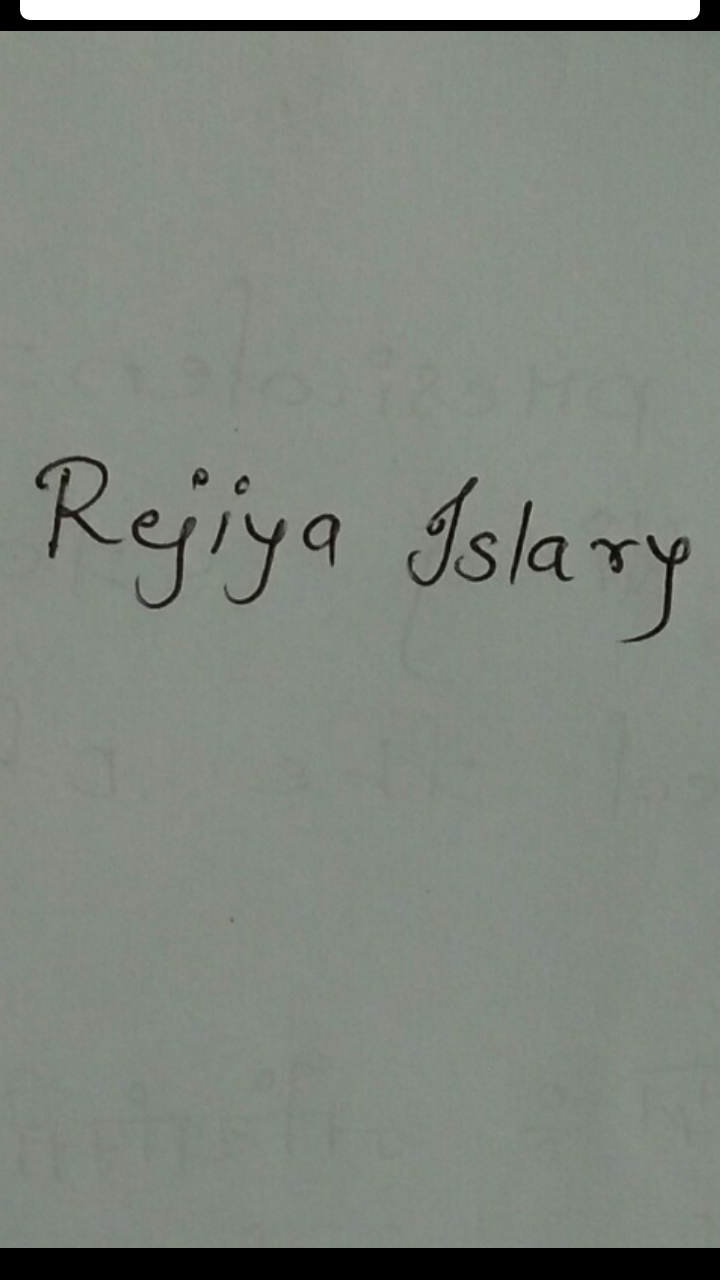 Rejiya Islary